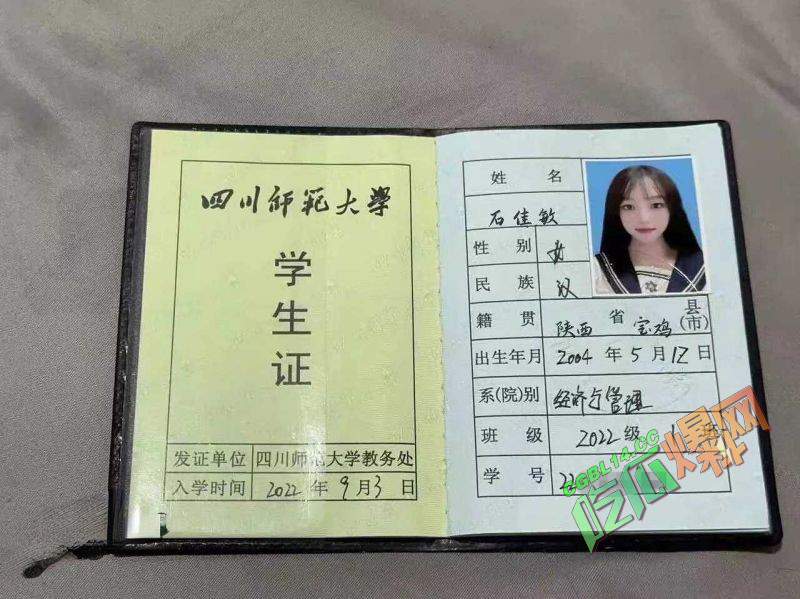 四川师范大学
学生证
发证单位 四川师范大学教务处
入学时间 2022 年 9 月 3 日
姓 名
石佳敏
性 别 女
民 族 汉
籍 贯 陕西 省 宝鸡 县(市)
出生年月 2004 年 5 月 12 日
系(院)别 经济与管理
班 级 2022 级 班
学 号 22
CGBL14.CC
吃瓜爆网